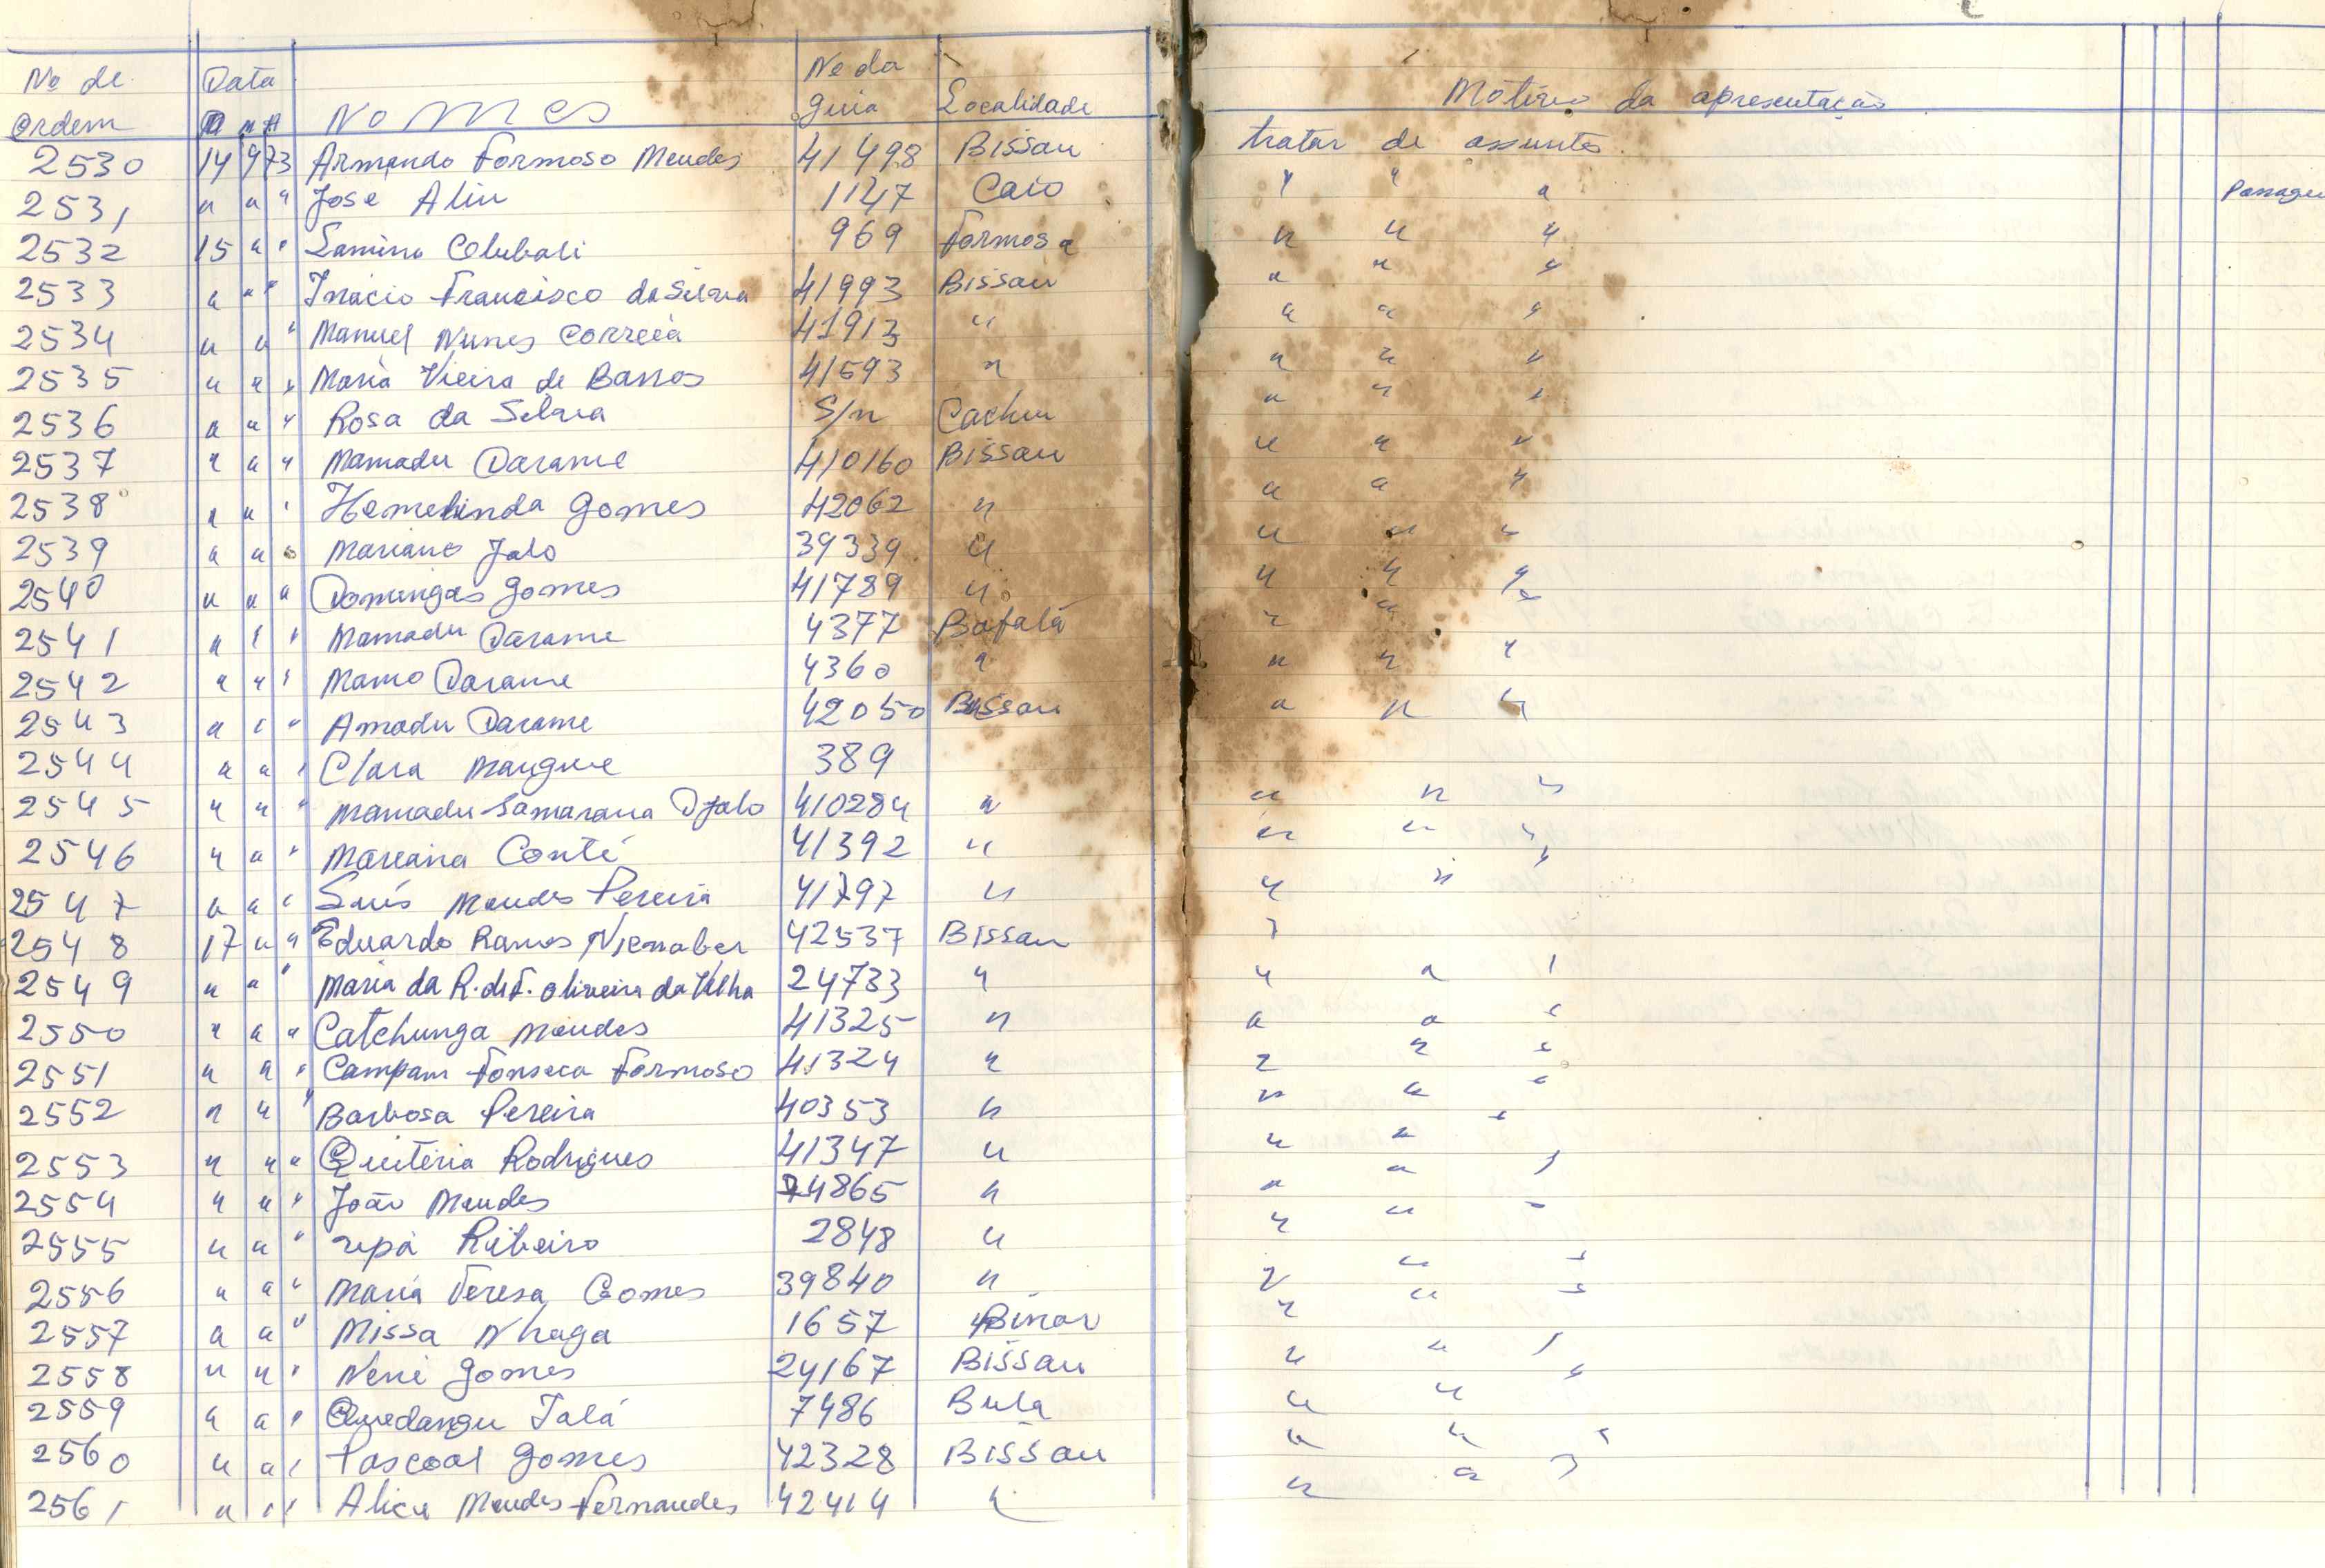 Nº de Data Nº da
Ordem D M A Nomes guia Localidade Motivo da apresentação
2530 14 9 73 Armando Formoso Mendes 41498 Bissau tratar de assuntos
2531 " " " José Aliu 1147 Caio " " " Passagem
2532 15 " " Lamino Colubali 969 Formosa " " "
2533 " " " Inácio Francisco da Silva 41993 Bissau " " "
2534 " " " Manuel Nunes Correia 41913 " " " "
2535 " " " Maria Vieira de Barros 41593 " " " "
2536 " " " Rosa da Selva S/n Cacheu " " "
2537 " " " Mamadu Darame 410160 Bissau " " "
2538 " " " Hemelinda Gomes 42062 " " " "
2539 " " " Mariano Jalo 39339 " " " "
2540 " " " Domingas Gomes 41789 " " " "
2541 " " " Mamadu Darame 4377 Bafatá " " "
2542 " " " Mamo Darame 4360 " " " "
2543 " " " Amadu Darame 42050 Bissau " " "
2544 " " " Clara Mangue 389
2545 " " " Mamadu Samarana Djalo 410284 " " " "
2546 " " " Mareana Conté 41392 " " " "
2547 " " " Luís Mendes Pereira 41797 " " " "
2548 17 " " Eduardo Ramos Nienaber 42537 Bissau "
2549 " " " Maria da R. de F. Oliveira da Velha 24733 " " " "
2550 " " " Catchunga Mendes 41325 " " " "
2551 " " " Campam Fonseca Formoso 41324 " " " "
2552 " " " Barbosa Pereira 40353 " " " "
2553 " " " Quitéria Rodrigues 41347 " " " "
2554 " " " João Mendes 74865 " " " "
2555 " " " Ribeiro 2848 " " " "
2556 " " " Maria Teresa Gomes 39840 " " " "
2557 " " " Missa Nhaga 1657 Binar " " "
2558 " " " Nené Gomes 24167 Bissau " " "
2559 " " " Quedangu Talá 7486 Bula " " "
2560 " " " Pascoal Gomes 42328 Bissau " " "
2561 " " " Alice Mendes Fernandes 42414 " " " "